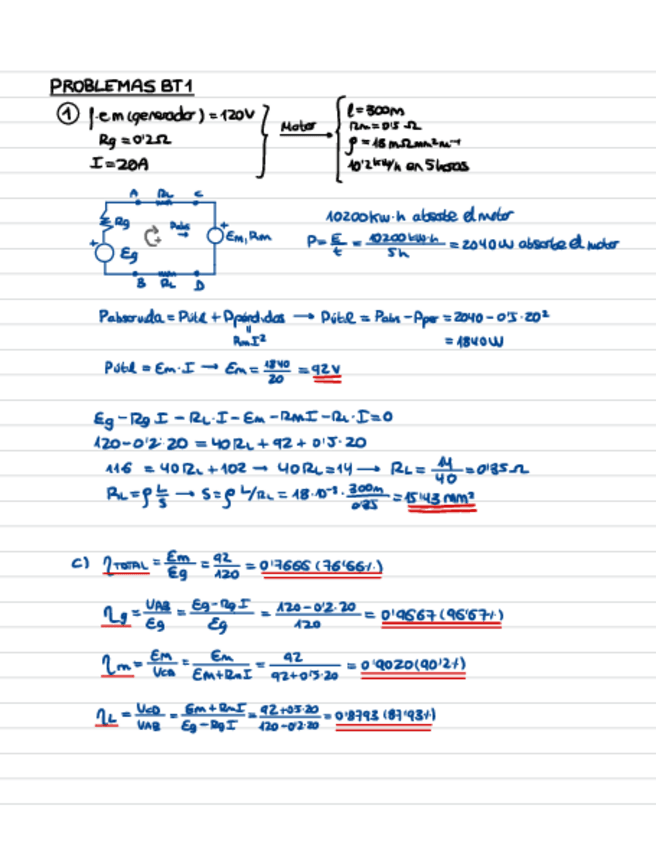 PROBLEMAS BT1
① f.e.m (generador) = 120V
Rg = 0'2Ω
I = 20A
Motor
l = 300m
Rm = 0'5 Ω
ρ = 18 mΩmm²m⁻¹
10'2 kW/h en 5 horas
A RL C
Rg
Pabs
Em, Rm
Eg
B RL D
10200 kw·h absorbe el motor
P = E/t = 10200 kw·h / 5h = 2040 W absorbe el motor
Pabsorvida = Pútil + Ppérdidas → Pútil = Pabs - Pper = 2040 - 0'5·20²
RmI²
= 1840 W
Pútil = Em·I → Em = 1840/20 = 92 V
Eg - Rg I - RL·I - Em - RmI - RL·I = 0
120 - 0'2·20 = 40RL + 92 + 0'5·20
116 = 40RL + 102 → 40RL = 14 → RL = 14/40 = 0'35 Ω
RL = ρ L/S → S = ρ L/RL = 18·10⁻³ · 300m/0'35 = 15'43 mm²
c) ηTOTAL = Em/Eg = 92/120 = 0'7666 (76'66%)
ηg = UAB/Eg = Eg - Rg I/Eg = 120 - 0'2·20/120 = 0'9667 (96'67%)
ηm = Em/UCD = Em/Em + RmI = 92/92 + 0'5·20 = 0'9020 (90'2%)
ηL = UCD/UAB = Em + RmI/Eg - RgI = 92 + 0'5·20/120 - 0'2·20 = 0'8793 (87'93%)